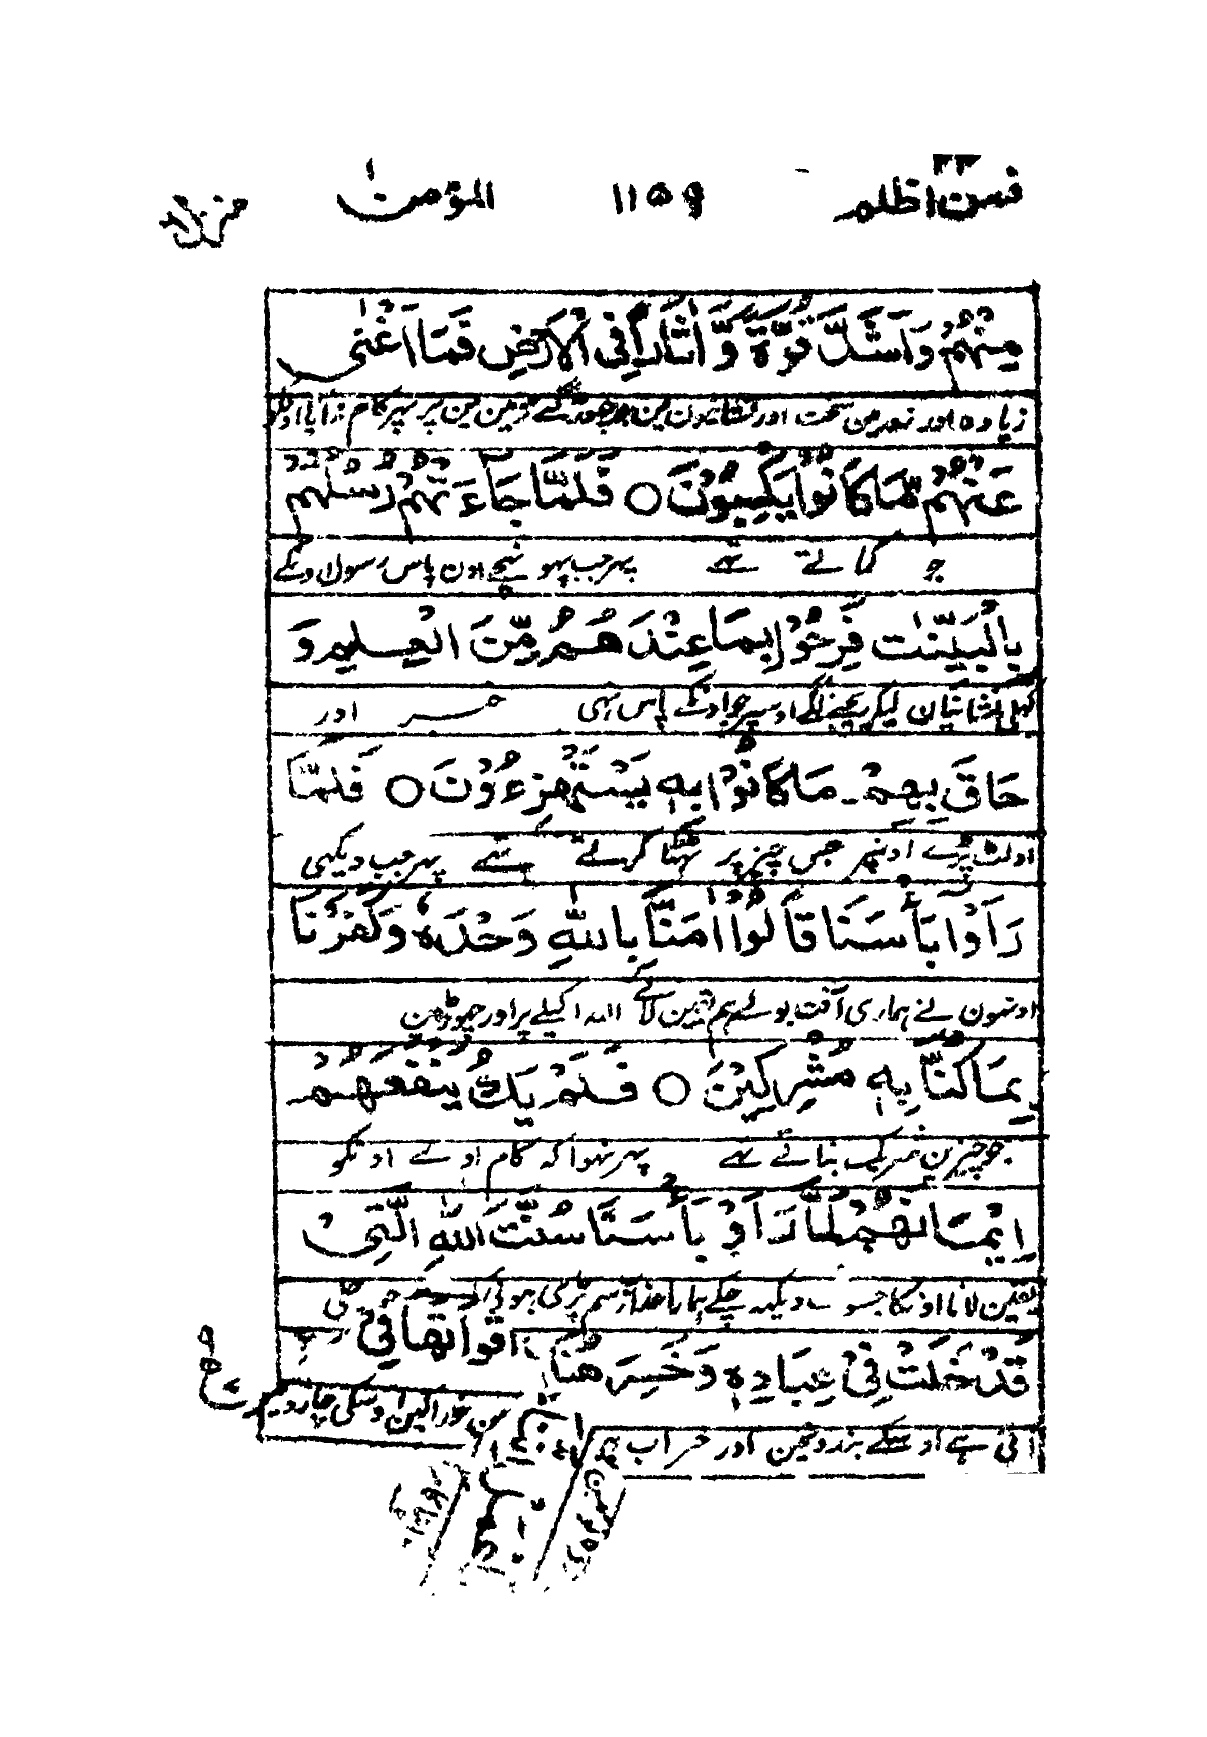 فمن اظلم ۲۴ ۱۱۵۹ المؤمن
مِنْهُمْ وَاَشَدَّ قُوَّةً وَّاٰثَارًا فِى الْاَرْضِ فَمَا اَغْنٰى
زیادہ اور زور مین سخت اور نشانیون مین جو چھوڑ گئے زمین مین پر پہر کام نہ آیا اونکو
عَنْهُمْ مَّا كَانُوْا يَكْسِبُوْنَ ○ فَلَمَّا جَآءَتْهُمْ رُسُلُهُمْ
جو کماتے تھے پہر جب پہونچے اون پاس رسول اونکے
بِالْبَيِّنٰتِ فَرِحُوْا بِمَا عِنْدَهُمْ مِّنَ الْعِلْمِ وَ
کھلی نشانیان لیکر ریجھنے لگے اوسپر جو اونکے پاس تھی خبر اور
حَاقَ بِهِمْ مَا كَانُوْا بِهٖ يَسْتَهْزِءُوْنَ ○ فَلَمَّا
اولٹ پڑے اونپر جس چیز پر ٹھٹھا کرتے تھے پہر جب دیکھی
رَاَوْا بَأْسَنَا قَالُوْا اٰمَنَّا بِاللّٰهِ وَحْدَهٗ وَكَفَرْنَا
اونہون نے ہماری آفت بولے ہم یقین لائے اللہ اکیلے پر اور چھوڑین
بِمَا كُنَّا بِهٖ مُشْرِكِيْنَ ○ فَلَمْ يَكُ يَنْفَعُهُمْ
جو چیزین شریک بتاتے تھے پہر نہوا کہ کام اوے اونکو
اِيْمَانُهُمْ لَمَّا رَاَوْا بَأْسَنَا سُنَّتَ اللّٰهِ الَّتِىْ
یقین لانا اونکا جسوقت دیکھ چکے ہمارا عذاب رسم پڑی ہوئی اللہ کی جو چلی
قَدْ خَلَتْ فِىْ عِبَادِهٖ وَخَسِرَ هُنَالِكَ
آئی ہے اوسکے بندونمین اور خراب ہوئے
اقواتها فى
مین خوراکین اوسکی چار دن